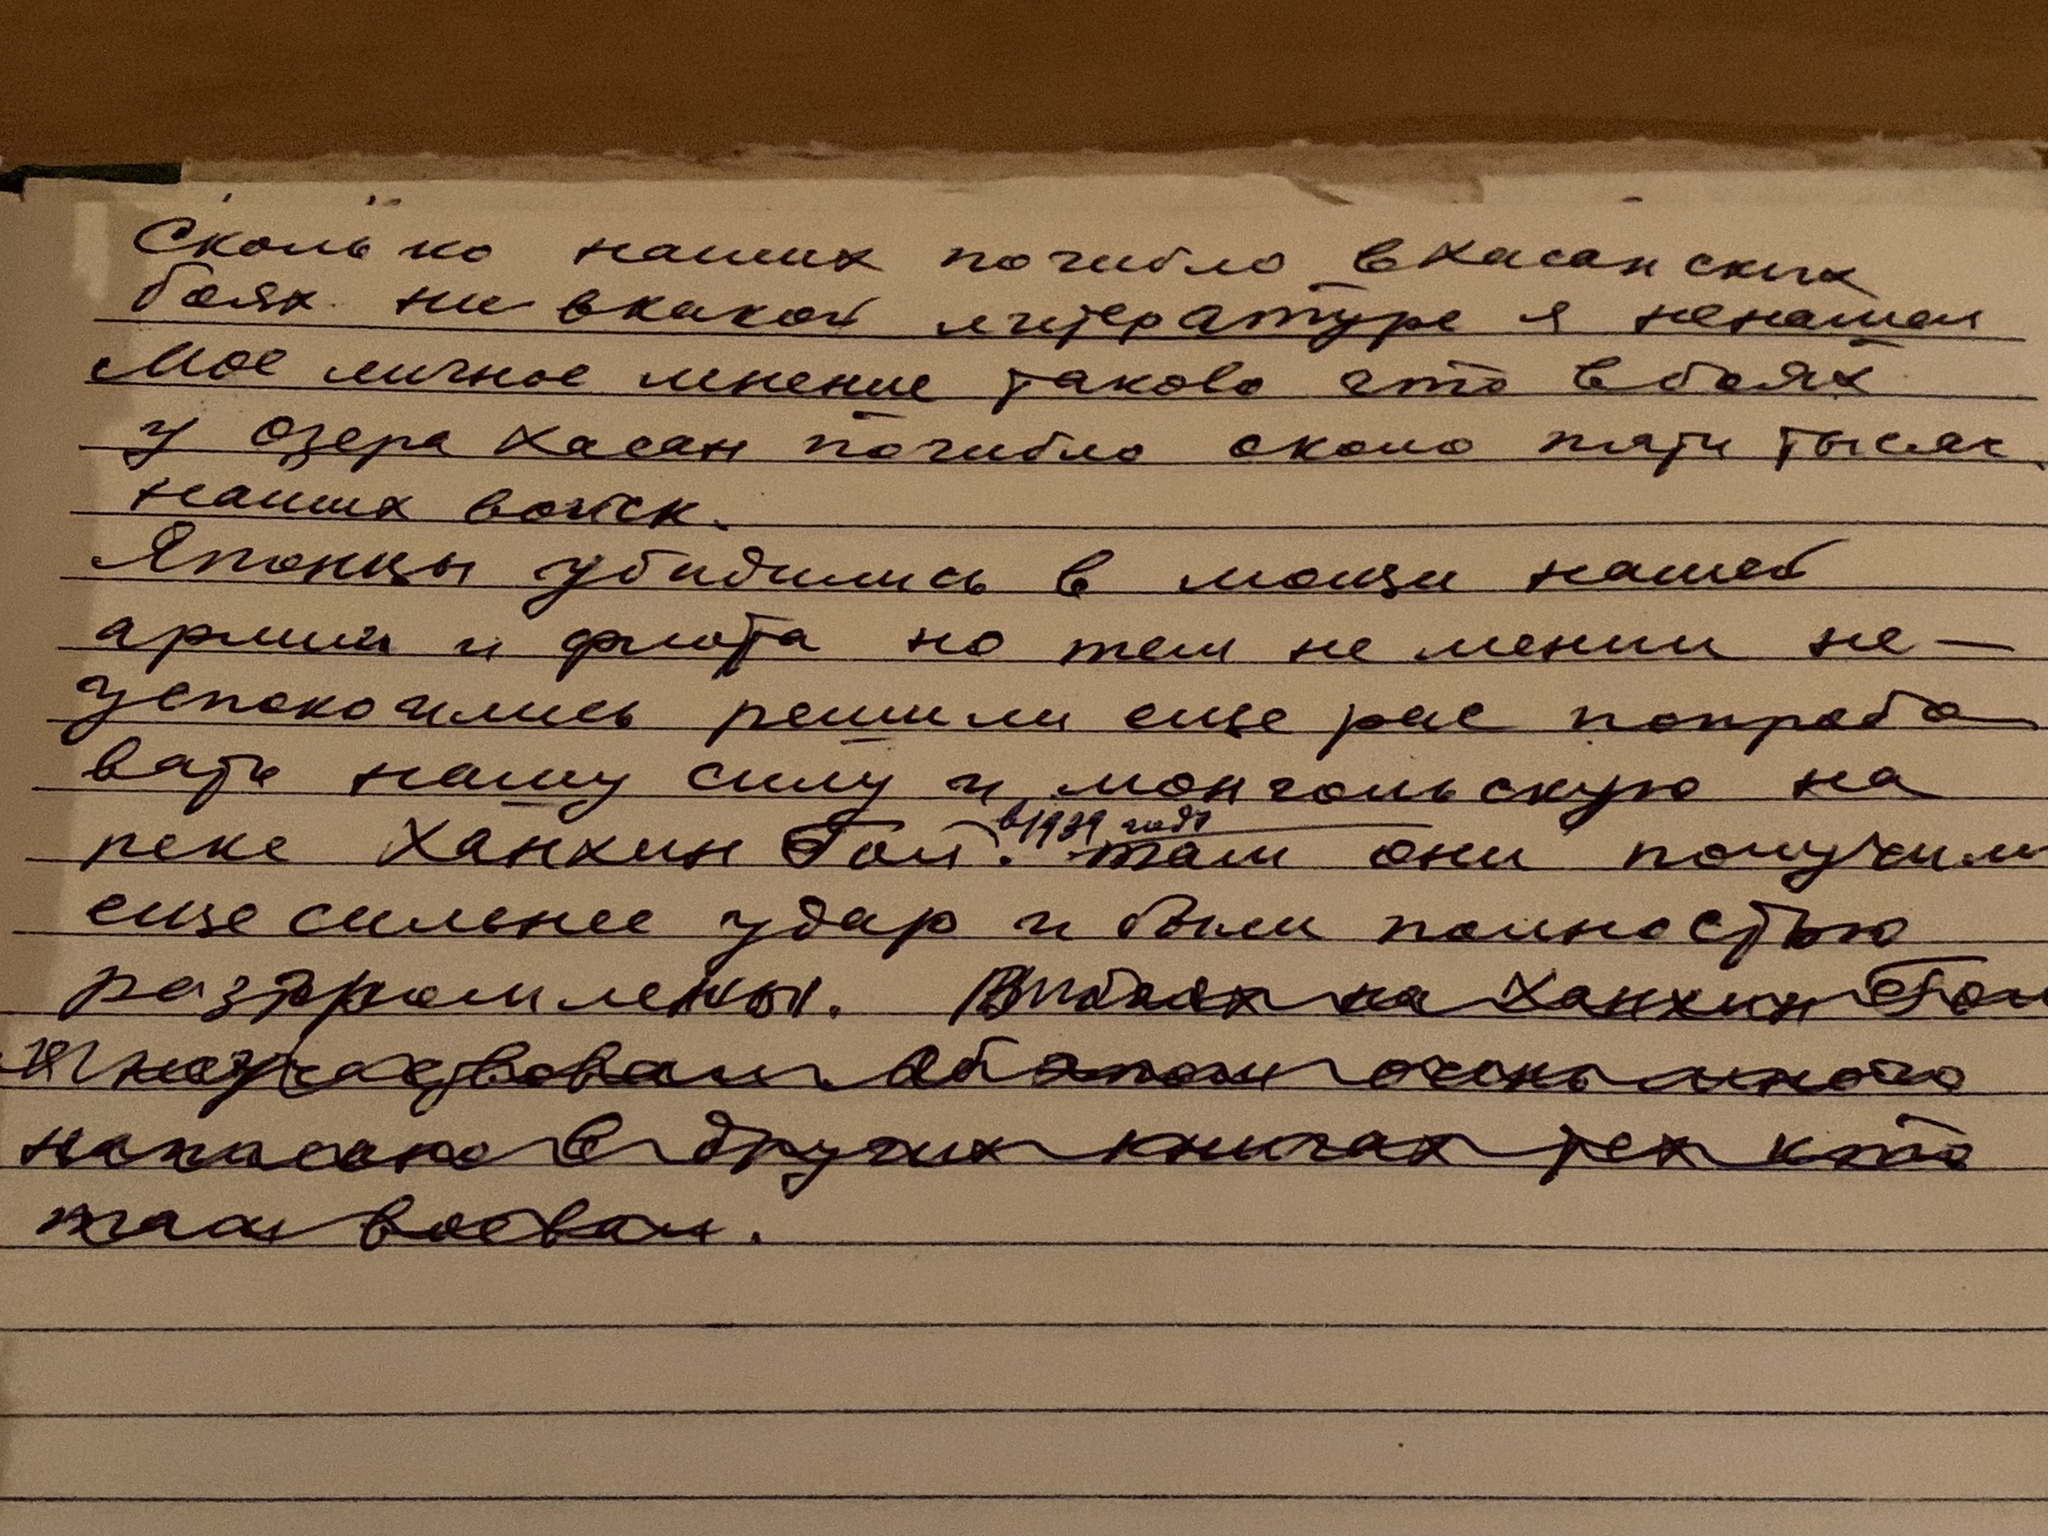 Сколько наших погибло в хасанских
боях ни в какой литературе я ненашел
Мое личное мнение таково что в боях
у озера Хасан погибло около пяти тысяч
наших войск.
Японцы убидились в мощи нашей
армии и флота но тем не мении не-
успокоились решили еще рас попробо
вать нашу силу и монгольскую на
реке Ханхин Гол. в 1939 году там они получили
еще сильнее удар и были полностью
разгромлены. В боях на Ханхин Гол
я не участвовал. Об этом очень много
написано в других книгах тех кто
там воевал.